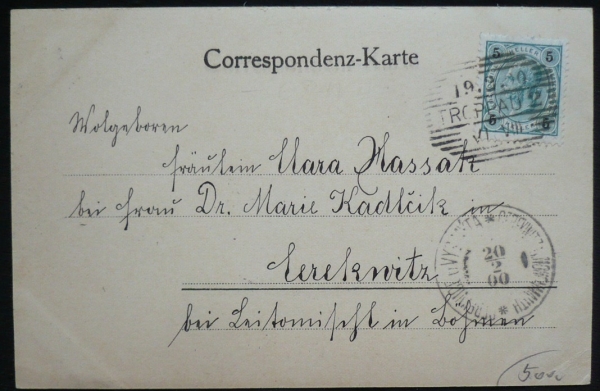 Correspondenz-Karte
5 5
HELLER
19. 2. 00
TROPPAU 2
5 5
Wolgeboren
Fräulein Clara Kassak
bei Frau Dr. Marie Kadlčik in
Cerekwitz
20
2
00
bei Leitomischl in Böhmen
500